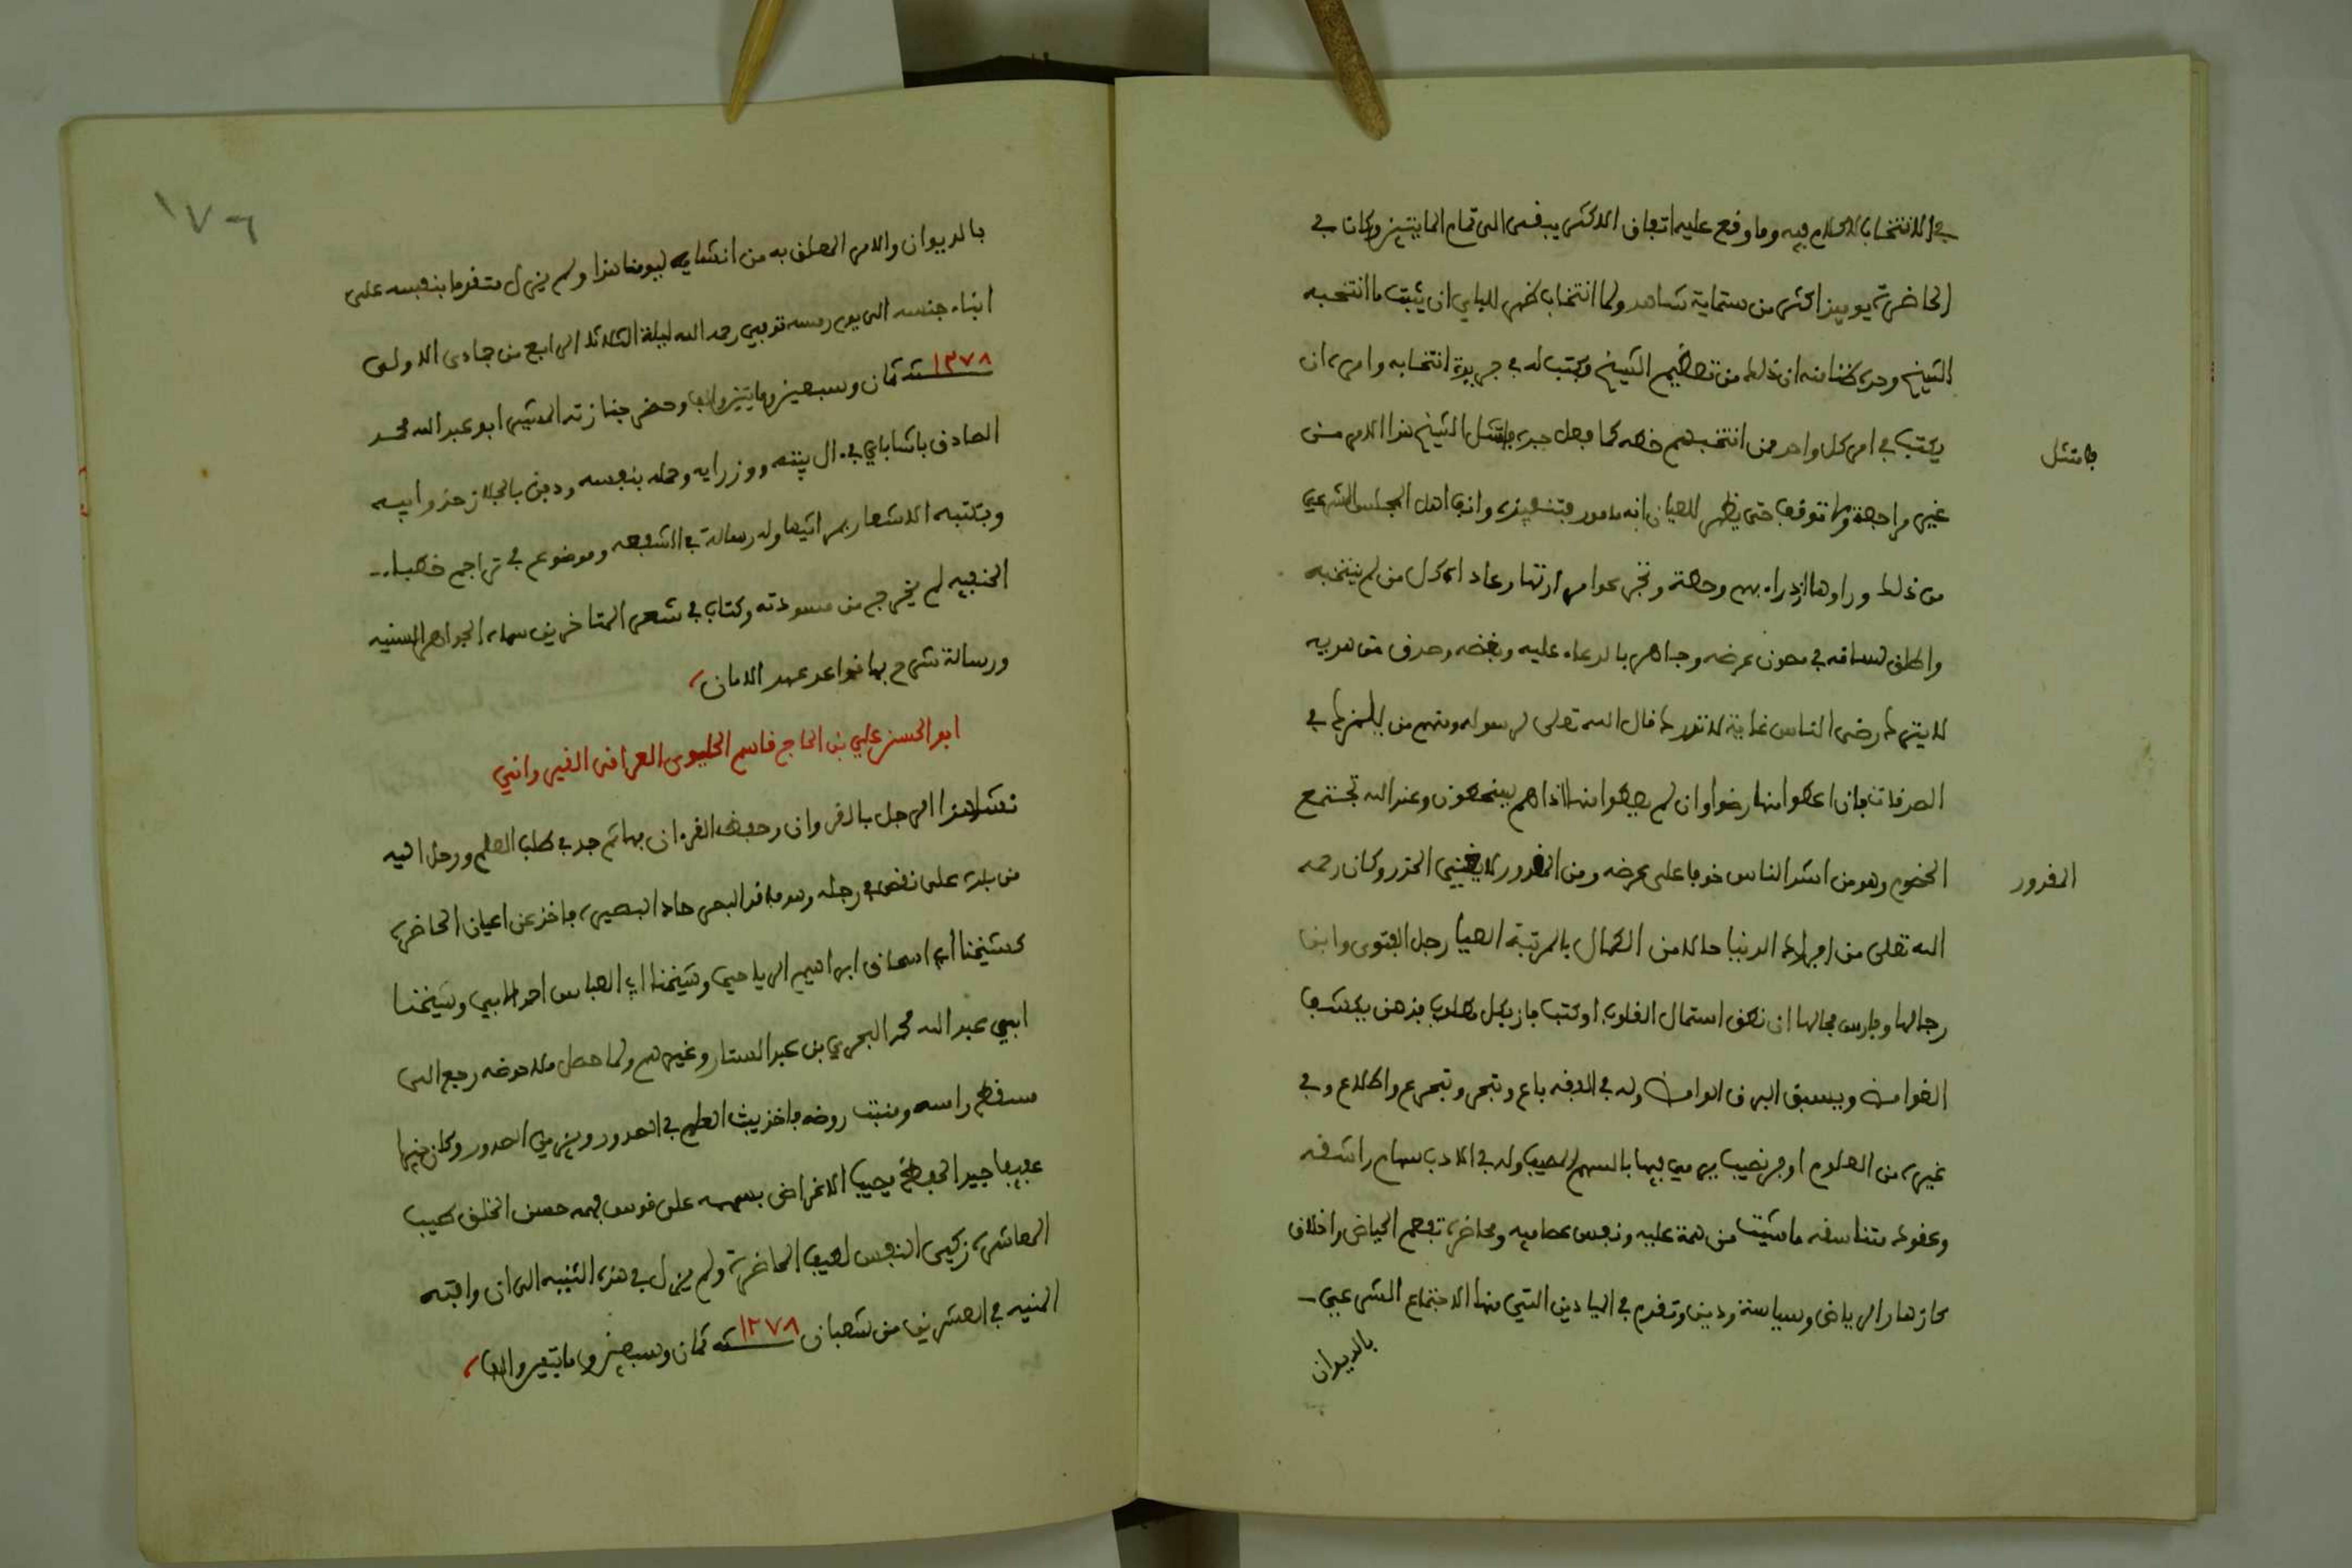 في الانتخاب الكلام فيه وما وقع عليه اتفاق الاكثر يبقى الى تمام المايتين وكانا في
الحاضرة يوميذ اكثر من ستماية شاهد ولما انتخاب ظهر للباي ان يثبت ما انتخبه
الشيخ وحده ظنا منه ان ذلك من تعظيم الشيخ وكتب له في جريدة انتخابه وامره ان
يكتب في امر كل واحد ممن انتخبهم خطه كما فعل جده فامتثل الشيخ هذا الامر من
فامتثل
غير مراجعة ولا توقف حتى يظهر للعيان انه مامور بتنفيذه وانف اهل المجلس الشرعي
من ذلك وراوها ازدراء بهم وحطة وتجرعوا مرارتها وعاداه كل من لم ينتخبه
واطلق لسانه في صون عرضه وجاهر بالدعاء عليه وبغضه وصدق من هو به
لا يترك رضى الناس غاية لا تدرك قال الله تعلى لرسوله ومنهم من يلمزك في
الصدقات فان اعطوا منها رضوا وان لم يعطوا منها اذا هم يسخطون وعند الله تجتمع
الخصوم وهو من اشد الناس خوفا على عرضه ومن المقدور لا يغني الحذر وكان رحمه
المقدور
الله تعلى من افراد الدنيا حالا من الكمال بالمرتبة العليا رجل الفتوى وابن
رجالها وفارس مجالها ان نطق استمال القلوب او كتب فاز بكل مطلوب بذهن يكشف
الغوامض ويسبق البرق الوامض وله في الفقه باع وتبحر وتبرع واطلاع وفي
غيره من العلوم اوفر نصيب يرمي فيها بالسهم المصيب وله في الادب سهام راشقه
وعقود متناسقه ما شيت من همة عليه ونفس عصاميه ومحاضرة تفعم الحياض واخلاق
كازهار الرياض وسياسة ودين وتقدم في الميادين التي منها الاجتماع الشرعي
بالديوان
١٧٦
بالديوان والامر المطلق به من انشايه ليومنا هذا ولم يزل متقدما بنفسه على
ابناء جنسه الى يوم رمسه توفي رحمه الله ليلة الثلاثا الرابع من جمادى الاولى
١٢٧٨ سنة ثمان وسبعين ومايتين والف وحضر جنازته المشير ابو عبد الله محمد
الصادق باشا باي في ال بيته ووزرايه وحمله بنفسه ودفن بالجلاز حذو ابيه
وبكته الاشعار بمراثيها وله رسالة في الشفعه وموضوع في تراجم خطباء
الحنفيه لم يخرج من مسودته وكتاب في شعر المتاخرين سماه الجواهر السنيه
ورسالة شرح بها قواعد عهد الامان
ابو الحسن علي بن الحاج قاسم الحليوي العراقي القيرواني
نشا هذا الرجل بالقيروان وحفظ القرءان بها ثم جد في طلب العلم ورحل اليه
من بلده على نقص في رجله وهو فاقد البصر حاد البصيره فاخذ عن اعيان الحاضرة
كشيخنا ابي اسحاق ابراهيم الرياحي وشيخنا ابي العباس احمد الابي وشيخنا
ابي عبد الله محمد البحري بن عبد الستار وغيرهم ولما حصل ملا حوضه رجع الى
مسقط راسه ومنبت روضه فاخذ يبث العلم في الصدور ويزين الصدور وكان خيرا
عفيفا جيد الحفظ مصيب الاغراض بسهمه على قوس فهمه حسن الخلق طيب
المعاشرة زكي النفس لطيف المحاضرة ولم يزل في هذه الثنيه الى ان وافته
المنيه في العشرين من شعبان ١٢٧٨ سنة ثمان وسبعين ومايتين والف